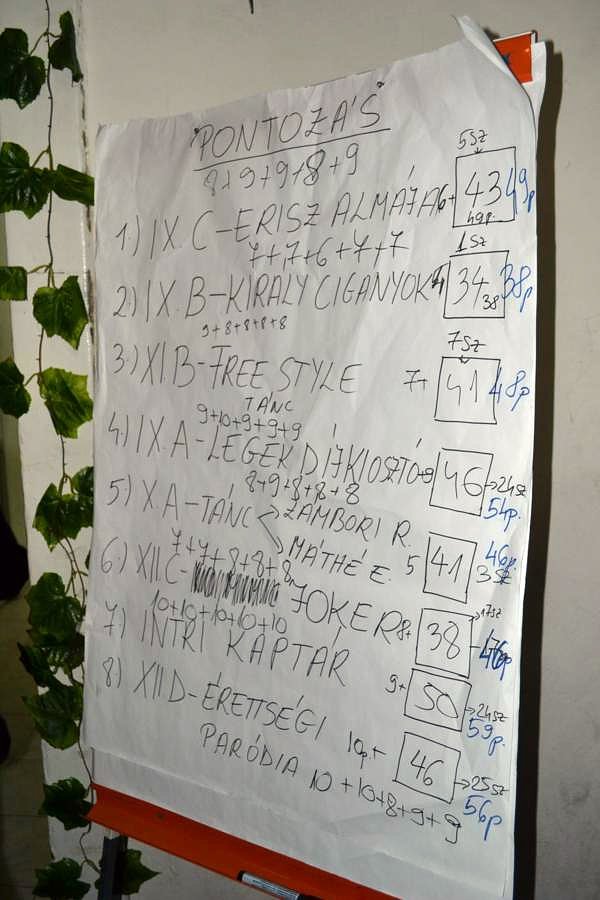 "PONTOZÁS"
8+9+9+8+9
5 SZ
1.) IX. C – ERISZ ALMÁJA 6+ 43 49p
49p.
7+7+6+7+7
1 SZ
2.) IX. B – KIRÁLY CIGÁNYOK 34 38 38p
9+8+8+8+8
7 SZ
3.) XI B – FREE STYLE 7+ 41 48p
TÁNC
9+10+9+9+9
4.) IX. A – LEGEK DÍJKIOSZTÓ +8 46 → 24 SZ
54p.
8+9+8+8+8
5.) X. A – TÁNC → ZÁMBORI R.
MÁTHÉ E. 5 41 46p. 3 SZ
7+7+8+8+8
6.) XII. C – JOKER 8+ 38 → 17 SZ
46p
10+10+10+10+10
7.) INTRI KAPTÁR 9+ 50 → 24 SZ
59p.
8.) XII D – ÉRETTSÉGI
PARÓDIA 10p.+ 46 → 25 SZ
56p
10+10+8+9+9